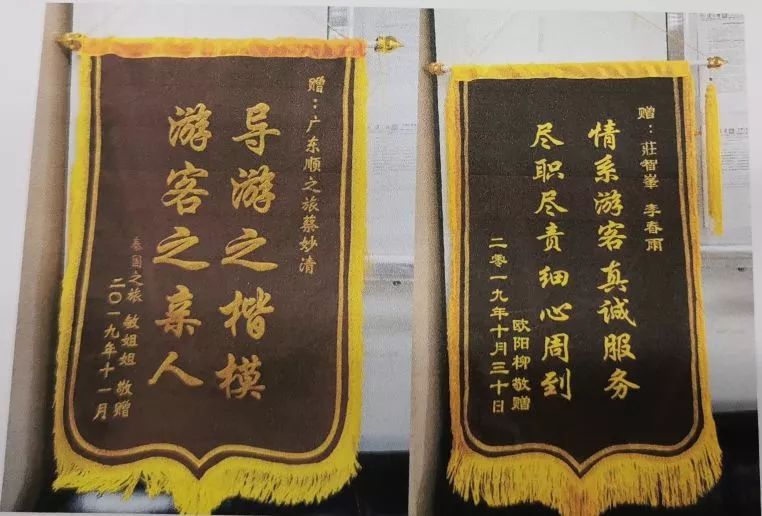 赠：广东顺之旅蔡妙清
导游之楷模
游客之亲人
泰国之旅 敏姐姐 敬赠
二〇一九年十一月
赠：莊智峯 李春雨
情系游客真诚服务
尽职尽责细心周到
欧阳柳敬赠
二零一九年十月三十日